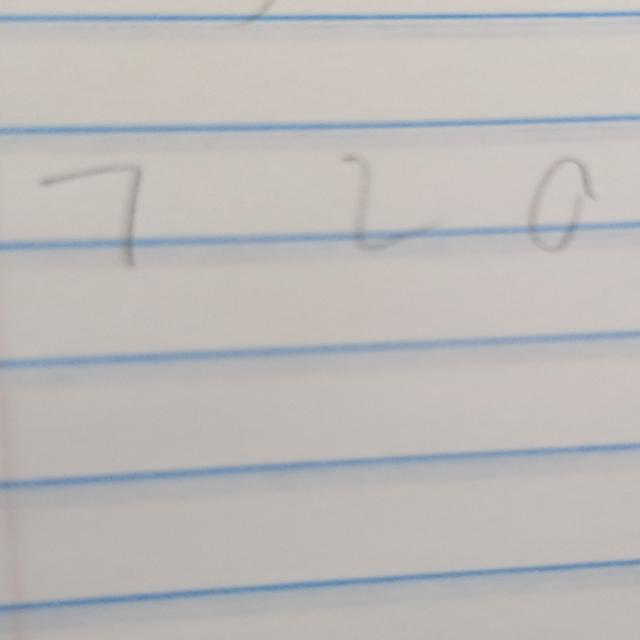 7 2 0